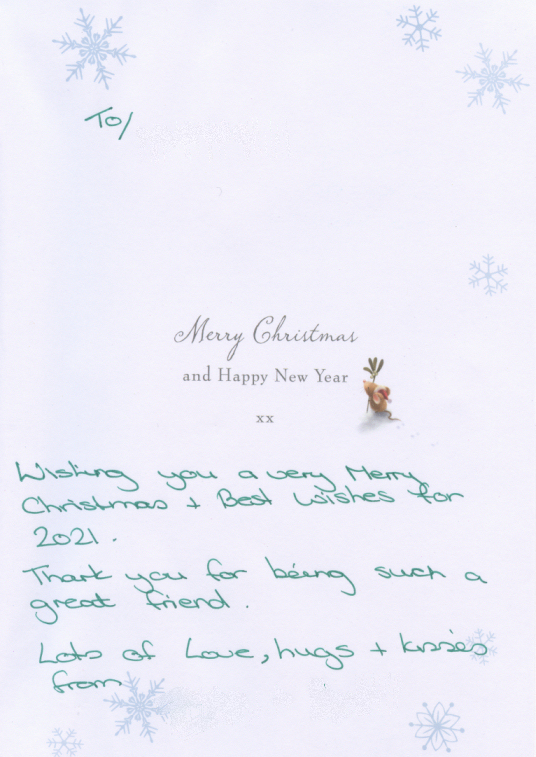 To/
Merry Christmas
and Happy New Year
xx
Wishing you a very Merry
Christmas + Best wishes for
2021.
Thank you for being such a
great friend.
Lots of Love, hugs + kisses
from